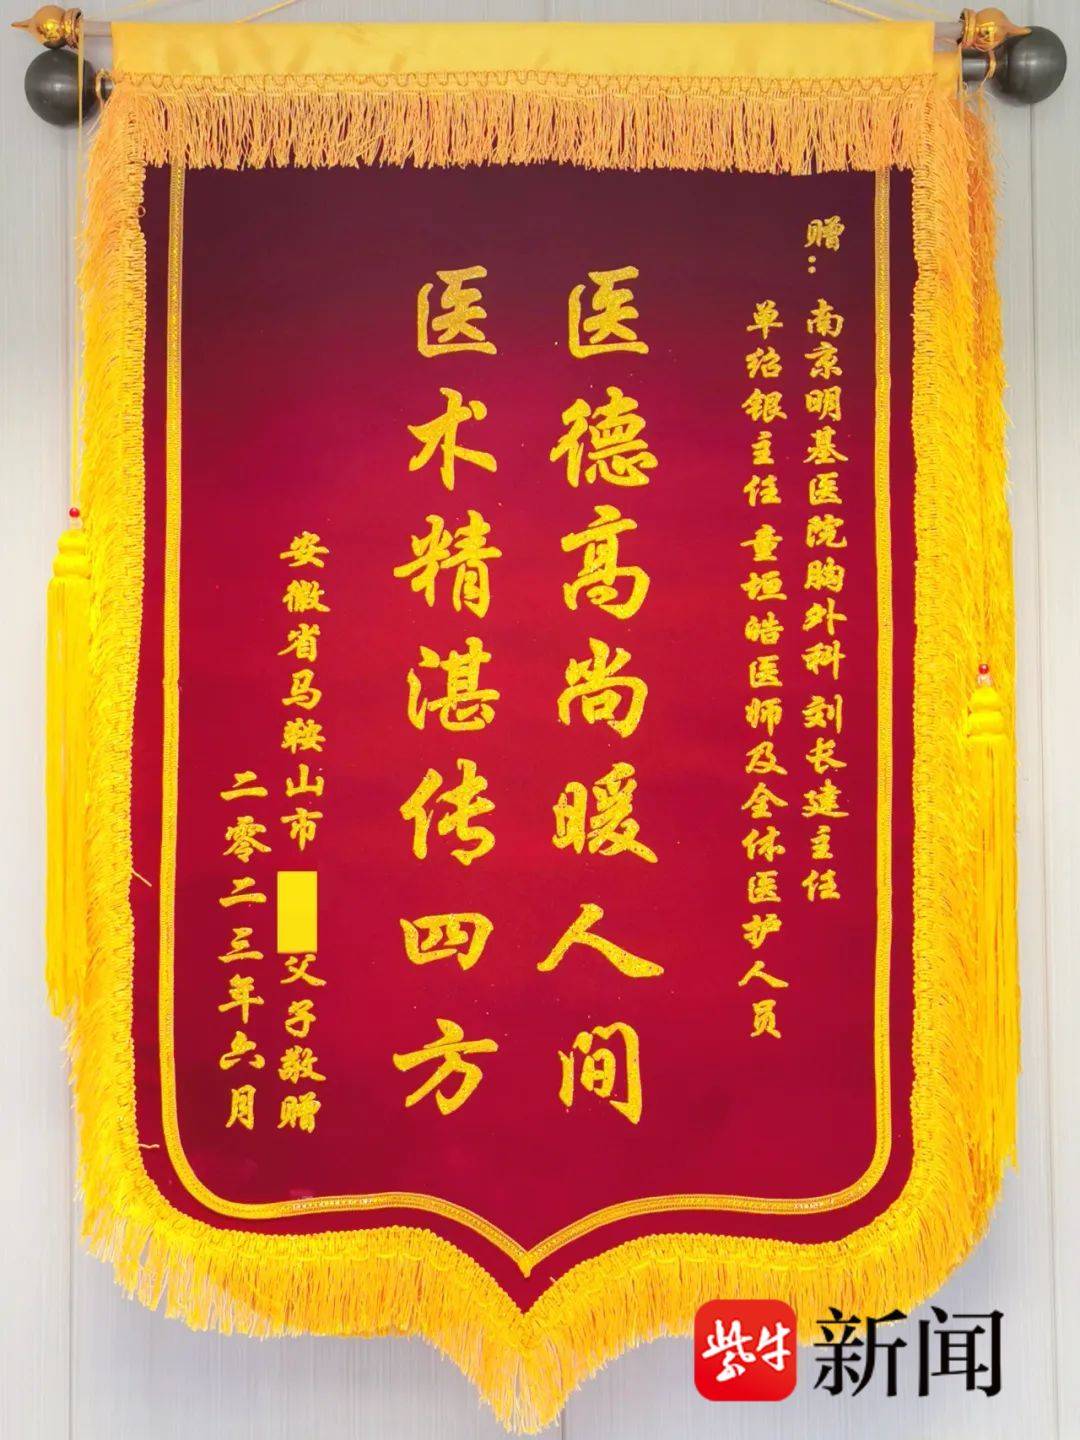 赠：南京明基医院胸外科刘长建主任
单绍银主任 童垣皓医师及全体医护人员
医德高尚暖人间
医术精湛传四方
安徽省马鞍山市
父子敬赠
二零二三年六月
紫牛 新闻